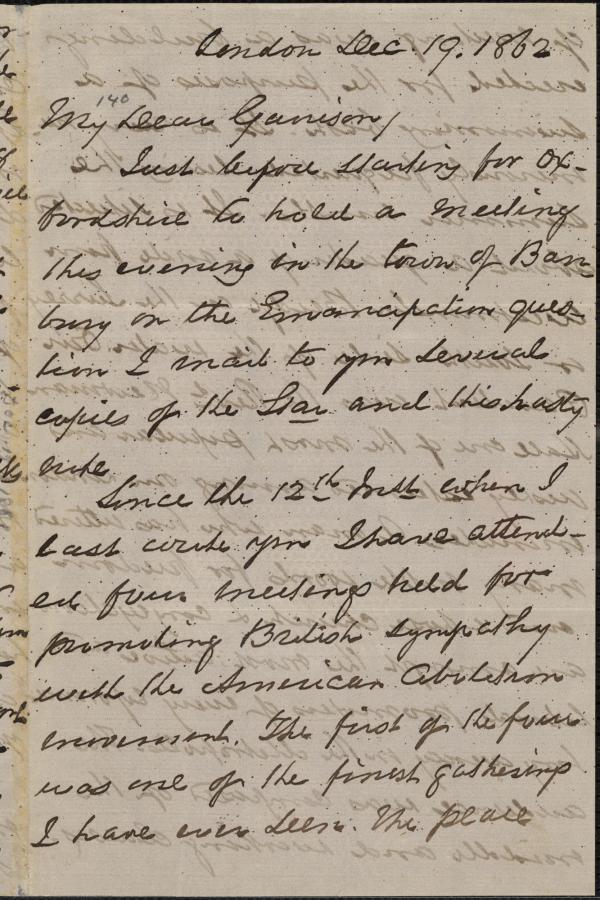 London Dec. 19. 1862
140
My Dear Garrison,
Just before starting for Ox-
fordshire to hold a meeting
this evening in the town of Ban-
bury on the Emancipation ques-
tion I mail to you several
copies of the Star and this hasty
note.
Since the 12th Inst when I
last wrote you I have attend-
ed four meetings held for
promoting British sympathy
with the American Abolition
movement. The first of the four
was one of the finest gatherings
I have ever seen. The place